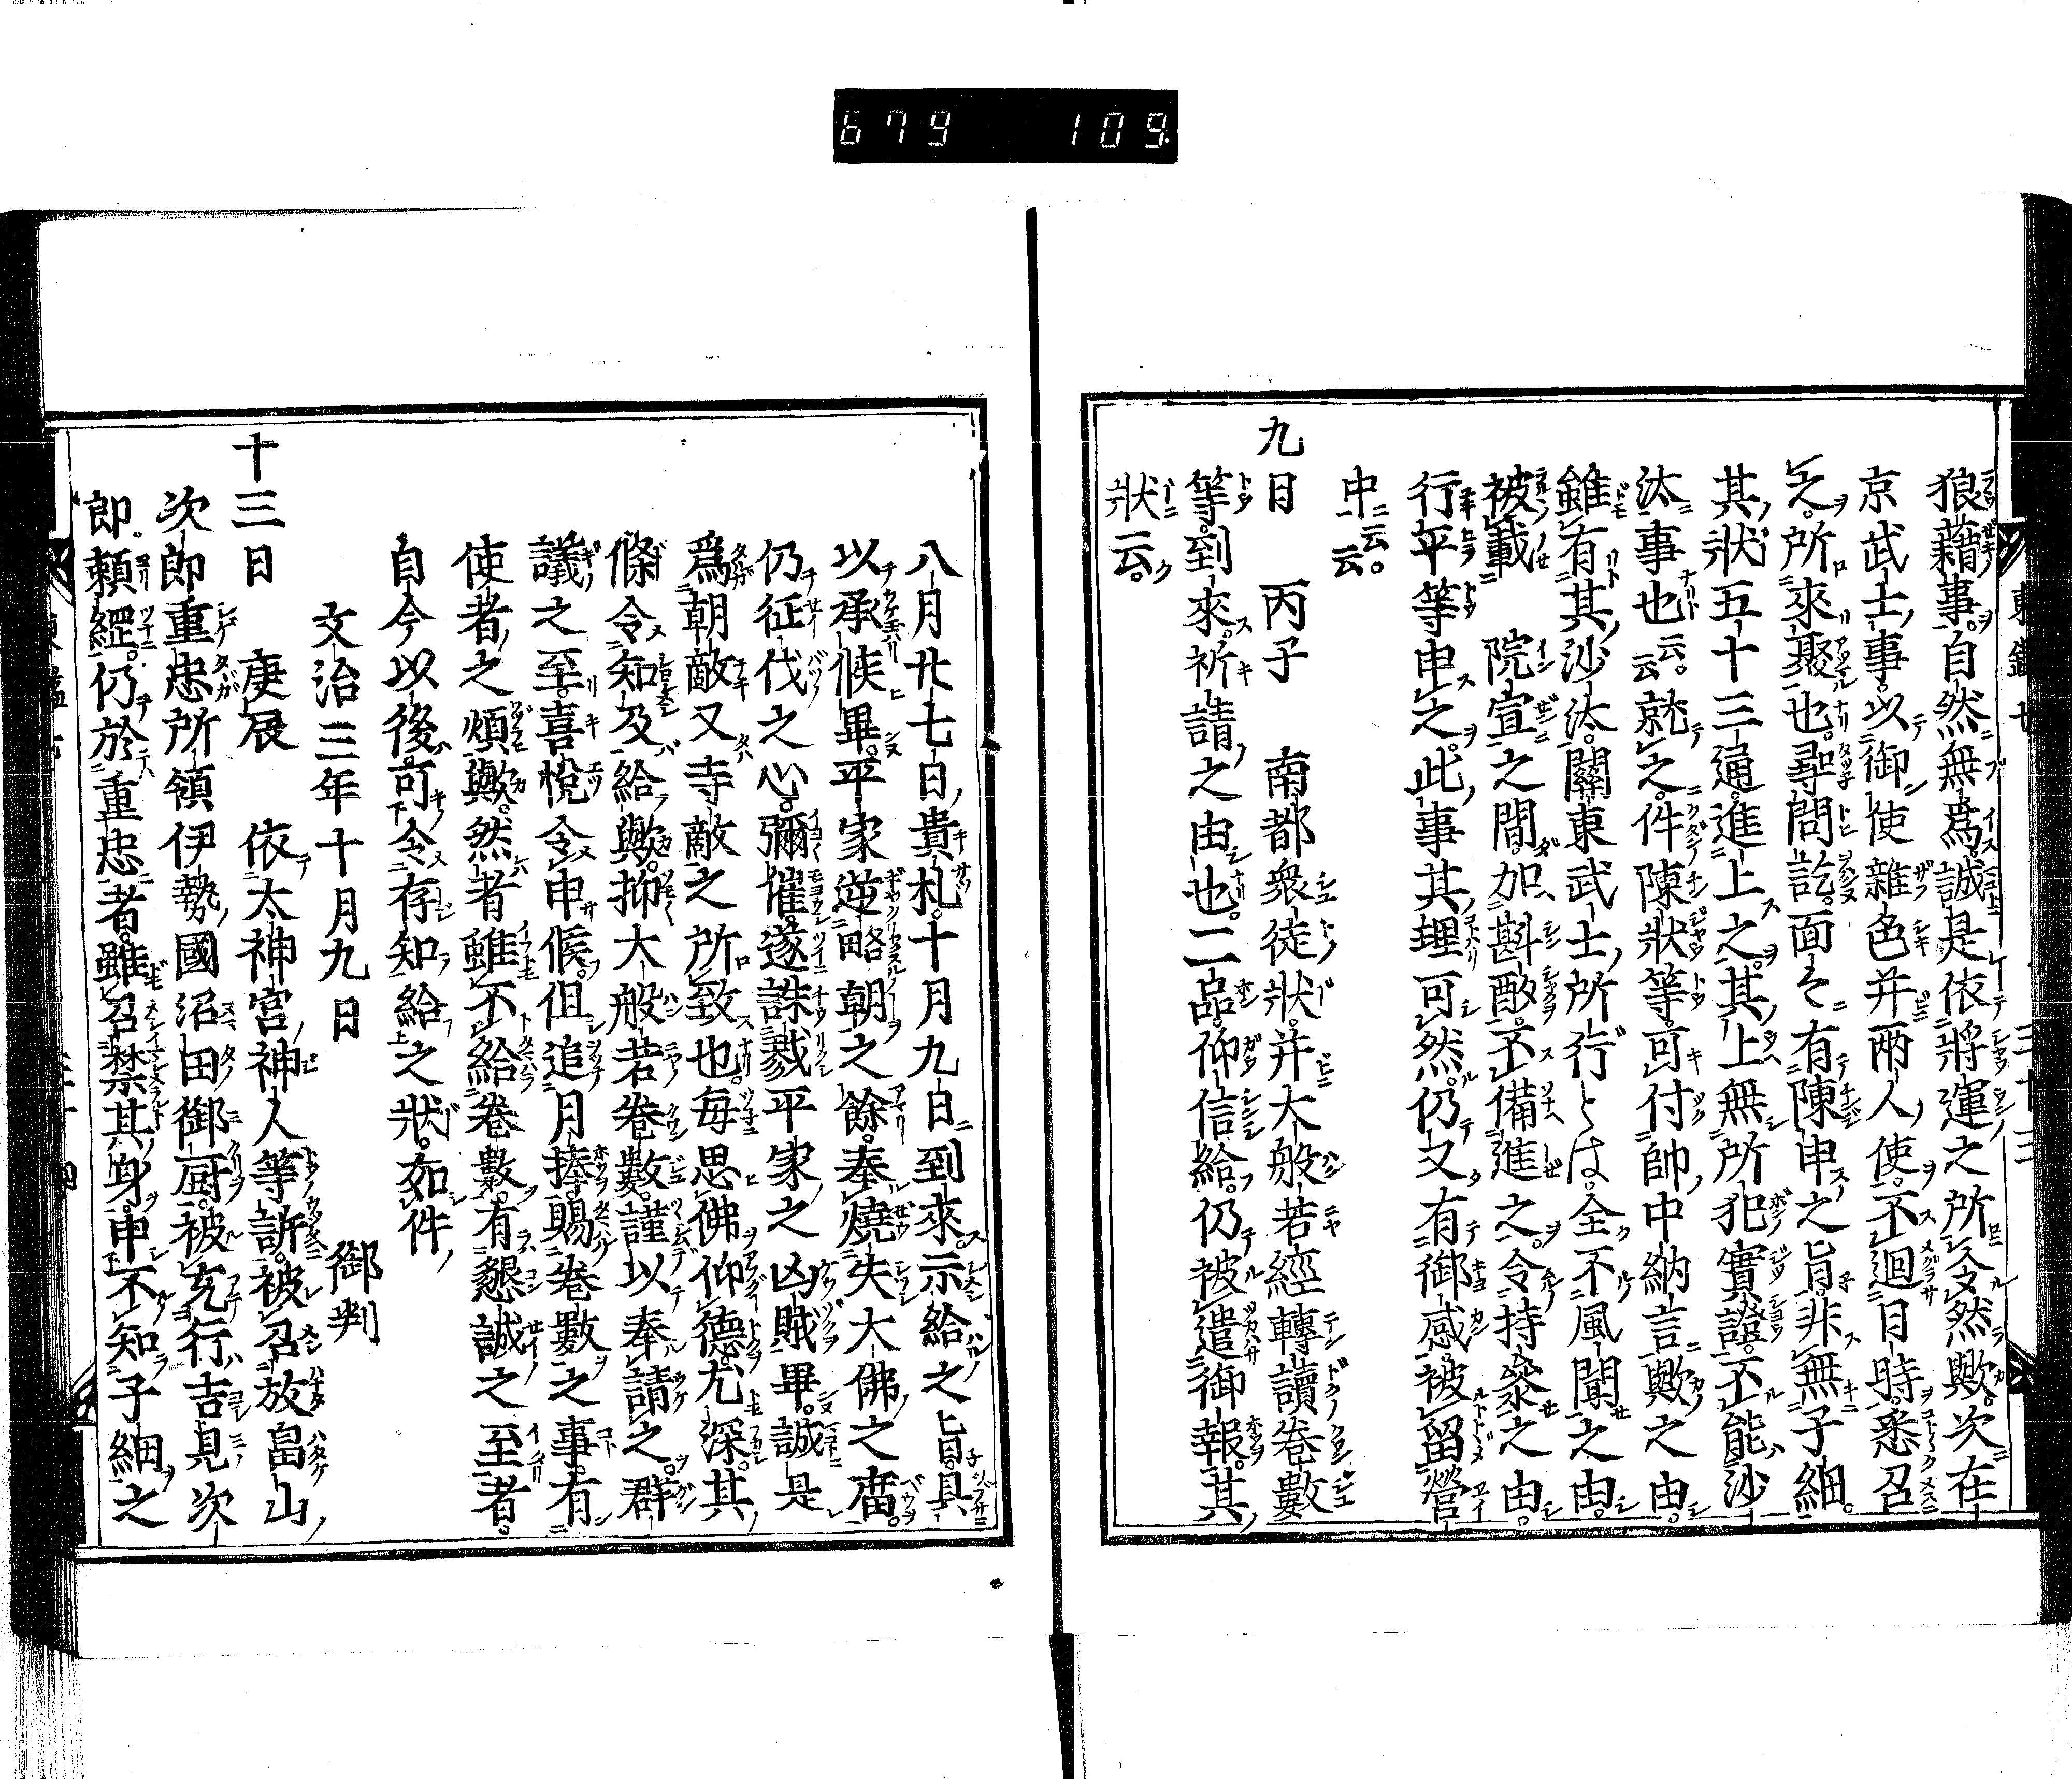 679 109
狼藉事。自然無爲。誠是依將運之所令然歟。次在
京武士事。以御使雜色并兩人使。不廻日時。悉召
之。所來聚也。尋問訖。面々有陳申之旨。非無子細。
其狀五十三通。進上之。其上無所犯實證。不能沙
汰事也云云。就之件陳狀等。可付帥中納言歟之由。
雖有其沙汰。關東武士所行とは。全不風聞之由。
被載 院宣之間。加斟酌。不備進之。令持參之由。
行平等申之。此事其理可然。仍又有御感。被留營
中云云。
九日 丙子 南都衆徒狀。并大般若經轉讀卷數
等。到來。祈請之由也。二品仰信給。仍被遣御報。其
狀云。
八月廿七日貴札。十月九日到來。示給之旨。具
以承候畢。平家逆略朝之餘。奉燒失大佛之廟。
仍征伐之心。彌催。遂誅戮平家之凶賊畢。誠是
爲朝敵又寺敵之所致也。每思佛仰德。尤深。其
條令知及給歟。抑大般若卷數。謹以奉請之。群
議之至。喜悅令申候。但追月捧賜卷數之事。有
使者之煩歟。然者雖不給卷數。有懇誠之至者。
自今以後。可令存知給之狀。如件
文治三年十月九日 御判
十三日 庚辰 依太神宮神人等訴。被召放畠山
次郎重忠所領伊勢國沼田御厨。被充行吉見次
郎頼經。仍於重忠者。雖召禁其身。申不知子細之